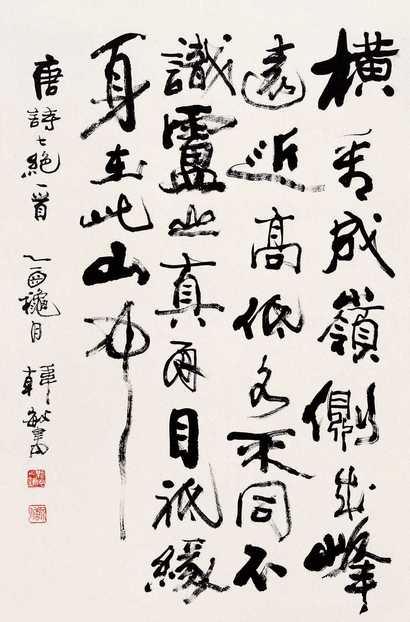 橫看成嶺側成峰
遠近高低各不同不
識盧山真面目祇緣
身在此山中
唐詩七絕一首 乙酉穐月 韓敏書